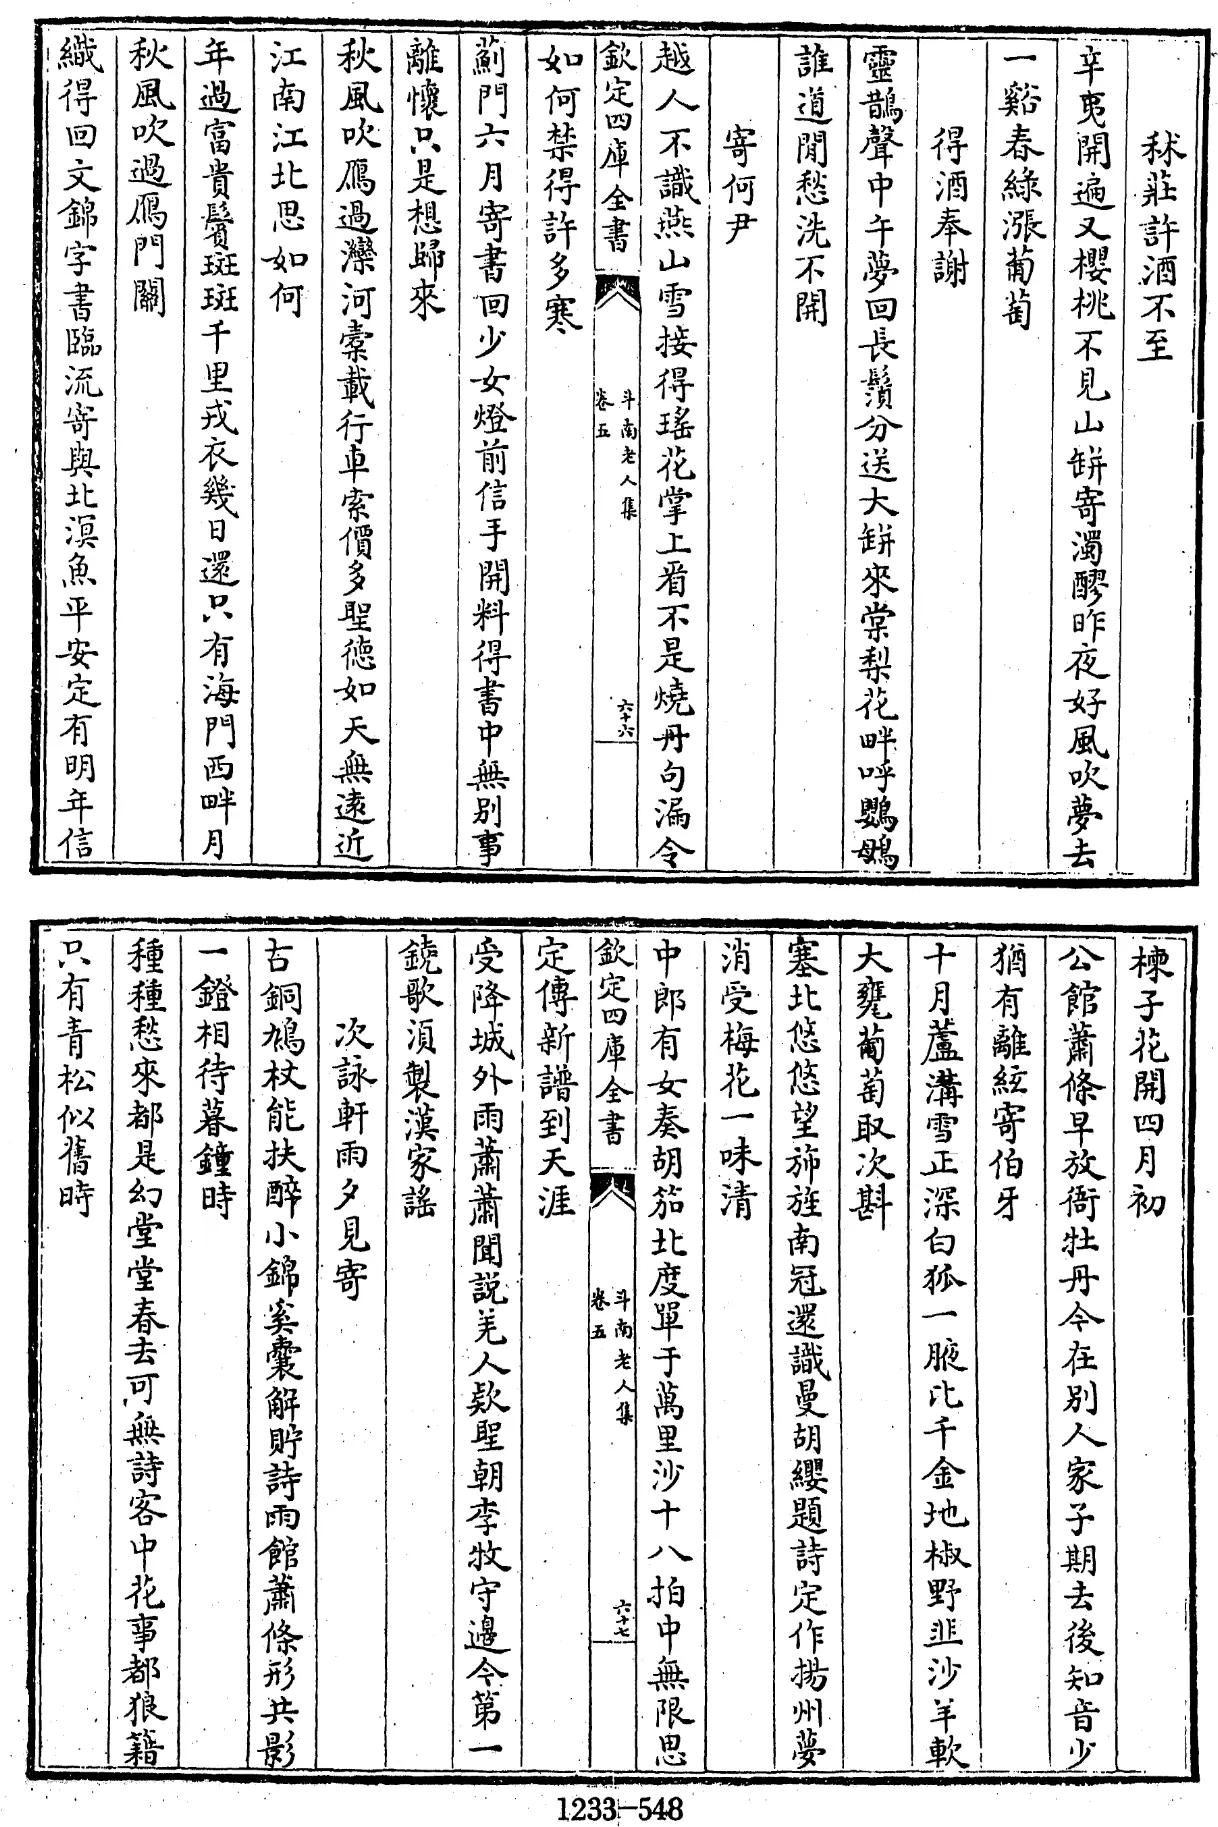 秫莊許酒不至
辛夷開遍又櫻桃不見山缾寄濁醪昨夜好風吹夢去
一谿春綠漲葡萄
得酒奉謝
靈鵲聲中午夢回長鬚分送大缾來棠梨花畔呼鸚鵡
誰道閒愁洗不開
寄何尹
越人不識燕山雪接得瑤花掌上看不是燒丹句漏令
欽定四庫全書
斗南老人集
卷五
六十六
如何禁得許多寒
薊門六月寄書回少女燈前信手開料得書中無別事
離懷只是想歸來
秋風吹鴈過灤河橐載行車索價多聖德如天無遠近
江南江北思如何
年過富貴鬢斑斑千里戎衣幾日還只有海門西畔月
秋風吹過鴈門關
織得回文錦字書臨流寄與北溟魚平安定有明年信
楝子花開四月初
公館蕭條早放衙牡丹今在別人家子期去後知音少
猶有離絃寄伯牙
十月蘆溝雪正深白狐一腋比千金地椒野韭沙羊軟
大甕葡萄取次斟
塞北悠悠望斾旌南冠還識曼胡纓題詩定作揚州夢
消受梅花一味清
中郎有女奏胡笳北度單于萬里沙十八拍中無限思
欽定四庫全書
斗南老人集
卷五
六十七
定傳新譜到天涯
受降城外雨蕭蕭聞說羌人欵聖朝李牧守邊今第一
鐃歌須製漢家謠
次詠軒雨夕見寄
古銅鳩杖能扶醉小錦奚囊解貯詩雨館蕭條形共影
一鐙相待暮鐘時
種種愁來都是幻堂堂春去可無詩客中花事都狼籍
只有青松似舊時
1233-548